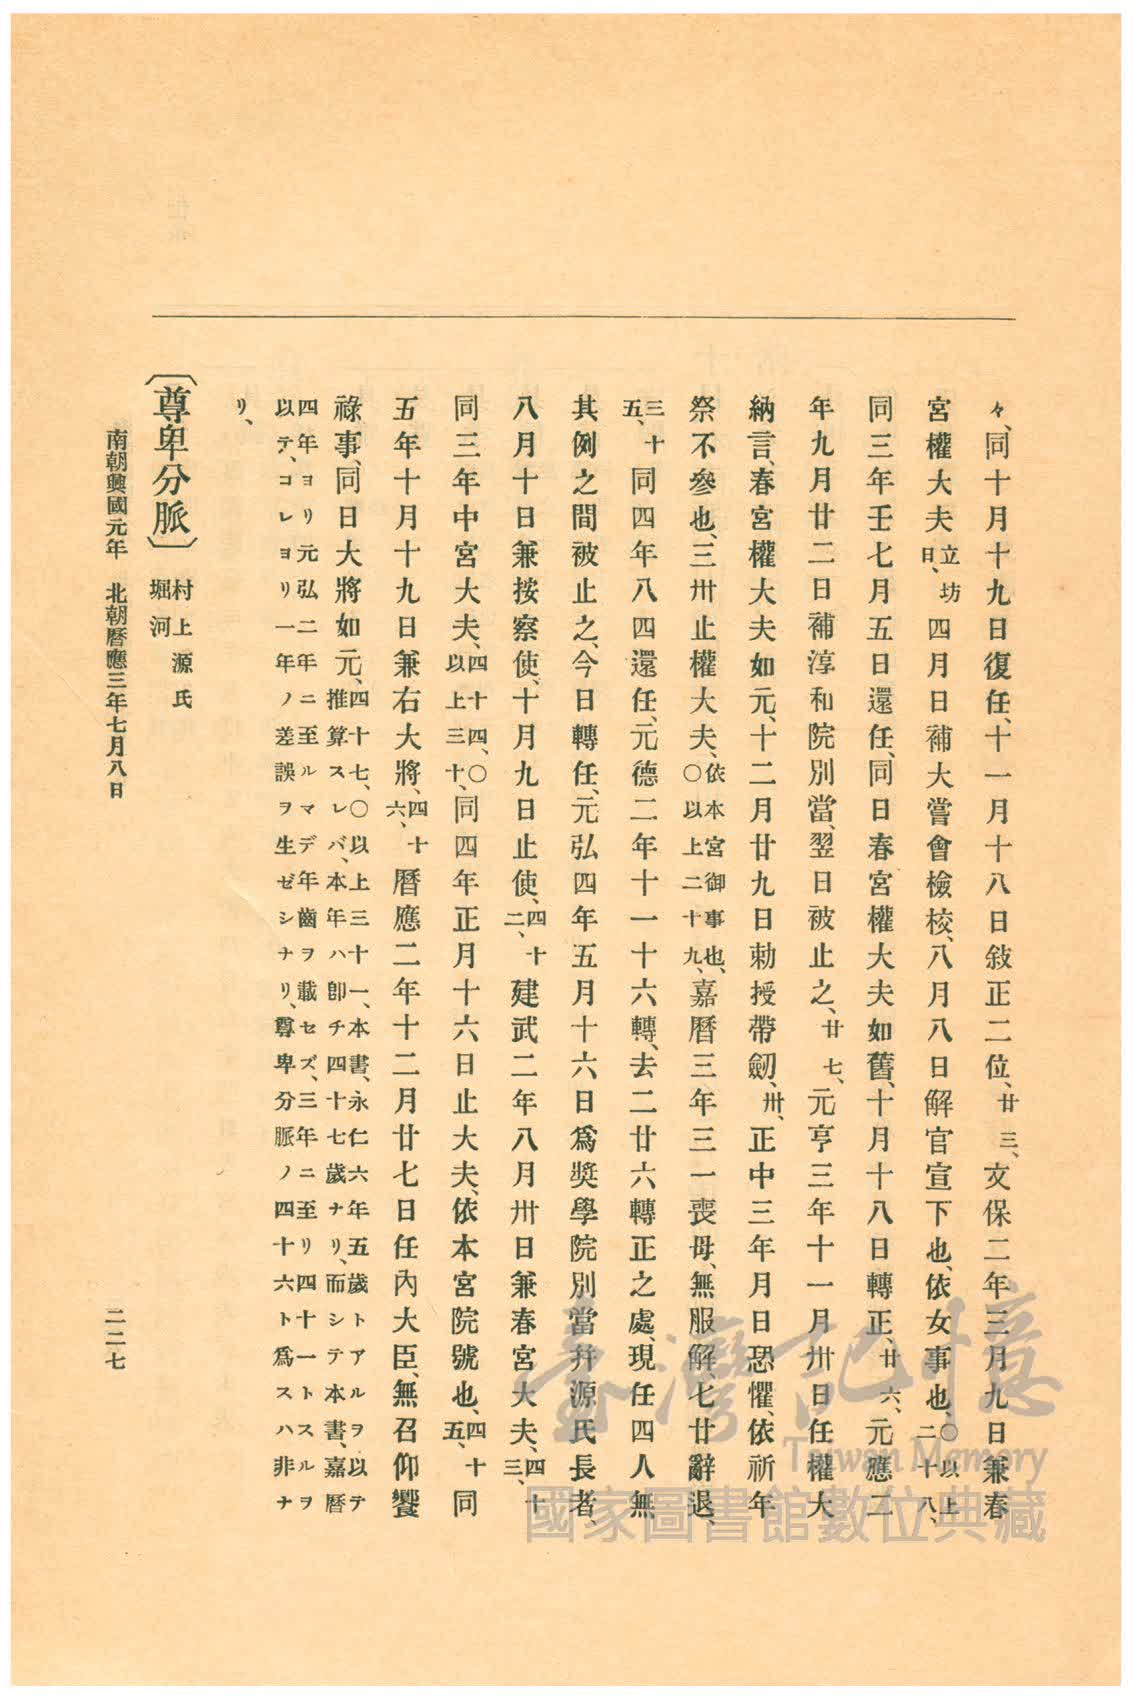 々、同十月十九日復任、十一月十八日敍正二位、廿三、文保二年三月九日兼春
宮權大夫、立坊日、四月日補大嘗會檢校、八月八日解官宣下也、依女事也、〇以上二十八、
同三年壬七月五日還任、同日春宮權大夫如舊、十月十八日轉正、廿六、元應二
年九月廿二日補淳和院別當、翌日被止之、廿七、元亨三年十一月卅日任權大
納言、春宮權大夫如元、十二月廿九日勅授帶劒、卅、正中三年月日恐懼、依祈年
祭不參也、三卅止權大夫、依本宮御事也、〇以上二十九、嘉曆三年三一喪母、無服解、七廿辭退、
三十五、同四年八四還任、元德二年十一十六轉、去二廿六轉正之處、現任四人無
其例之間被止之、今日轉任、元弘四年五月十六日爲奬學院別當幷源氏長者、
八月十日兼按察使、十月九日止使、四十二、建武二年八月卅日兼春宮大夫、四十三、
同三年中宮大夫、四十四、〇以上三十、同四年正月十六日止大夫、依本宮院號也、四十五、同
五年十月十九日兼右大將、四十六、曆應二年十二月廿七日任內大臣、無召仰饗
祿事、同日大將如元、四十七、〇以上三十一、本書、永仁六年五歲トアルヲ以テ推算スレバ、本年ハ卽チ四十七歲ナリ、而シテ本書、嘉曆
四年ヨリ元弘二年ニ至ルマデ年齒ヲ載セズ、三年ニ至リ四十一トスルヲ以テ、コレヨリ一年ノ差誤ヲ生ゼシナリ、尊卑分脈ノ四十六ト爲スハ非ナ
リ、
〔尊卑分脈〕村上源氏堀河
南朝興國元年 北朝曆應三年七月八日
二二七
臺灣記憶
Taiwan Memory
國家圖書館數位典藏